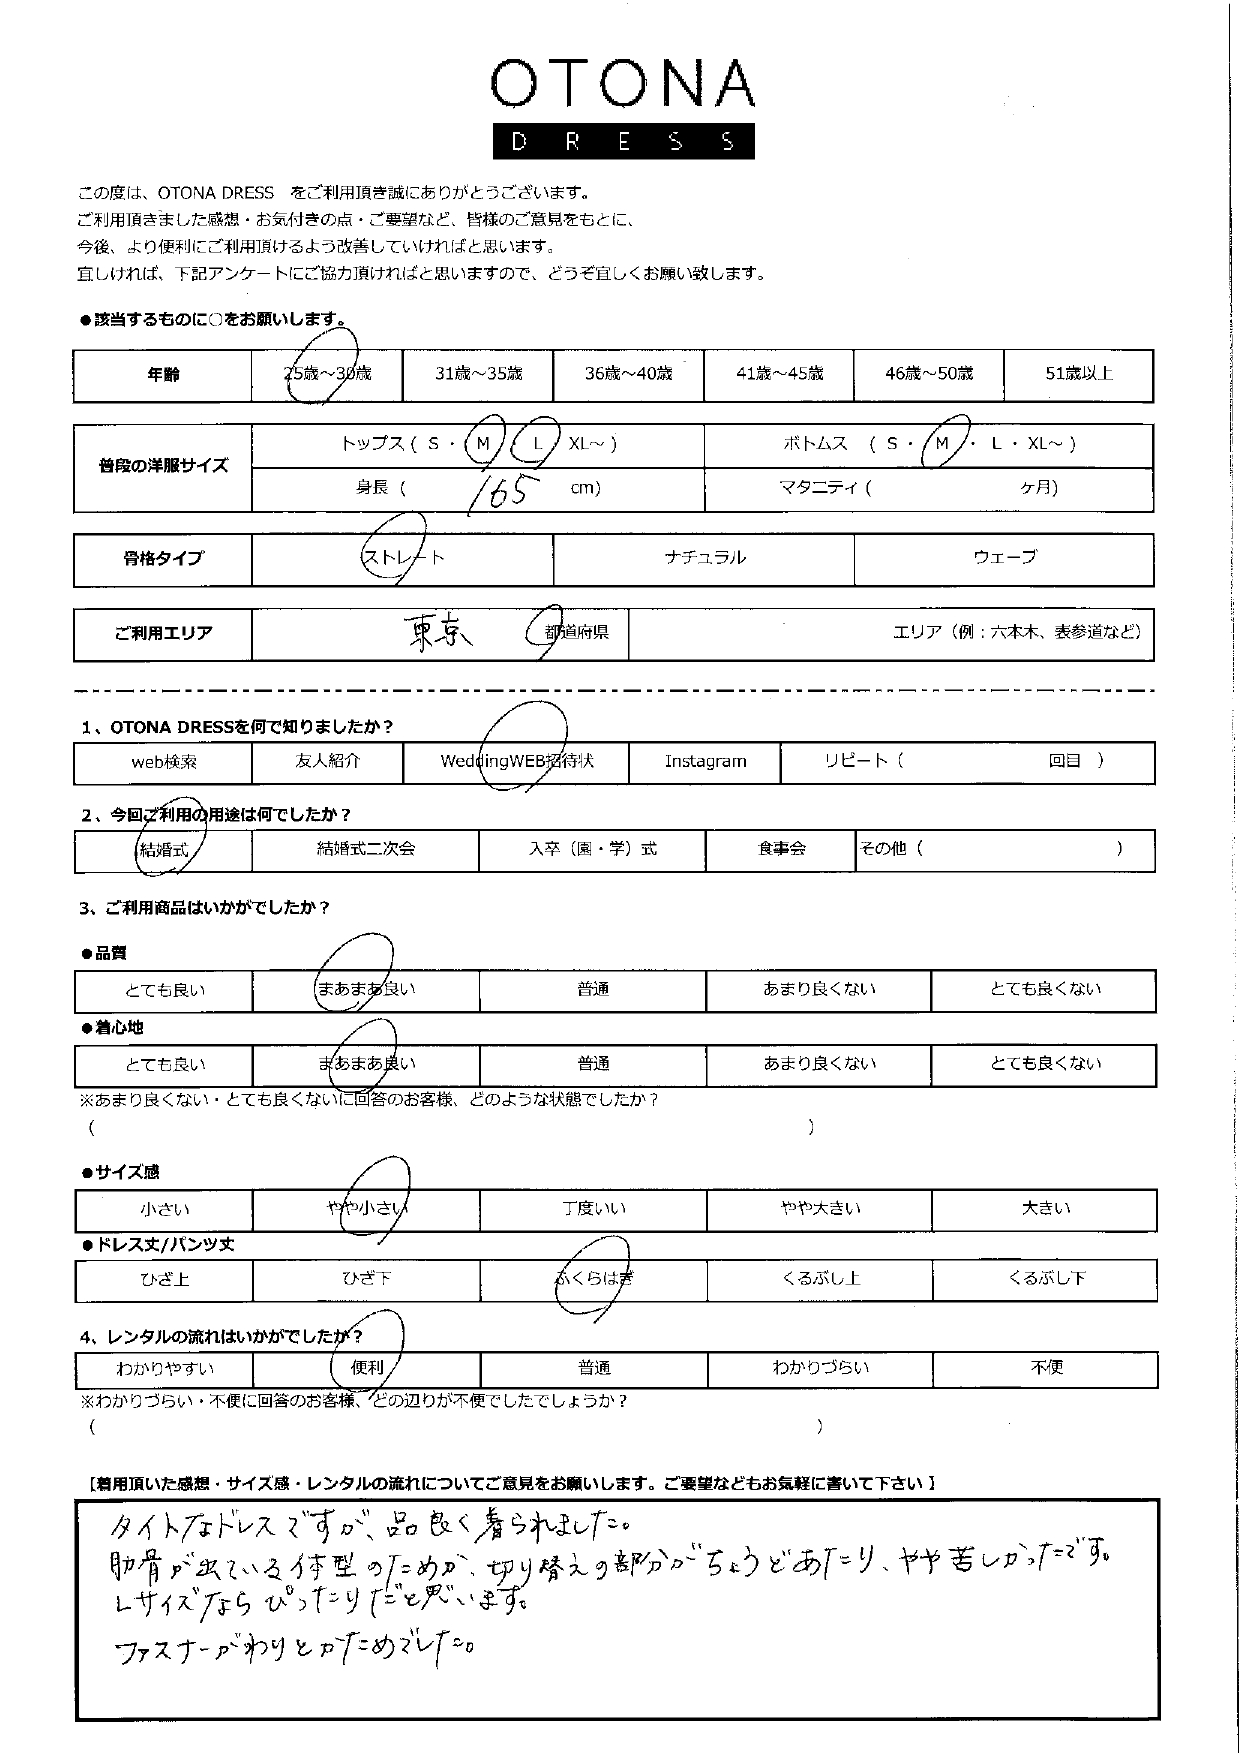 OTONA
DRESS
この度は、OTONA DRESS をご利用頂き誠にありがとうございます。
ご利用頂きました感想・お気付きの点・ご要望など、皆様のご意見をもとに、
今後、より便利にご利用頂けるよう改善していければと思います。
宜しければ、下記アンケートにご協力頂ければと思いますので、どうぞ宜しくお願い致します。
●該当するものに○をお願いします。
年齢 25歳～30歳 31歳～35歳 36歳～40歳 41歳～45歳 46歳～50歳 51歳以上
普段の洋服サイズ トップス ( S ・ M ・ L ・ XL～ ) ボトムス ( S ・ M ・ L ・ XL～ )
身長 ( 165 cm) マタニティ ( ヶ月)
骨格タイプ ストレート ナチュラル ウェーブ
ご利用エリア 東京 都道府県 エリア（例：六本木、表参道など）
1、OTONA DRESSを何で知りましたか？
web検索 友人紹介 WeddingWEB招待状 Instagram リピート ( 回目 )
2、今回ご利用の用途は何でしたか？
結婚式 結婚式二次会 入卒（園・学）式 食事会 その他 ( )
3、ご利用商品はいかがでしたか？
●品質
とても良い まあまあ良い 普通 あまり良くない とても良くない
●着心地
とても良い まあまあ良い 普通 あまり良くない とても良くない
※あまり良くない・とても良くないに回答のお客様、どのような状態でしたか？
( )
●サイズ感
小さい やや小さい 丁度いい やや大きい 大きい
●ドレス丈/パンツ丈
ひざ上 ひざ下 ふくらはぎ くるぶし上 くるぶし下
4、レンタルの流れはいかがでしたか？
わかりやすい 便利 普通 わかりづらい 不便
※わかりづらい・不便に回答のお客様、どの辺りが不便でしたでしょうか？
( )
【着用頂いた感想・サイズ感・レンタルの流れについてご意見をお願いします。ご要望などもお気軽に書いて下さい】
タイトなドレスですが、品良く着られました。
肋骨が出ている体型のためか、切り替えの部分がちょうどあたり、やや苦しかったです。
Lサイズならぴったりだと思います。
ファスナーがわりとかためでした。